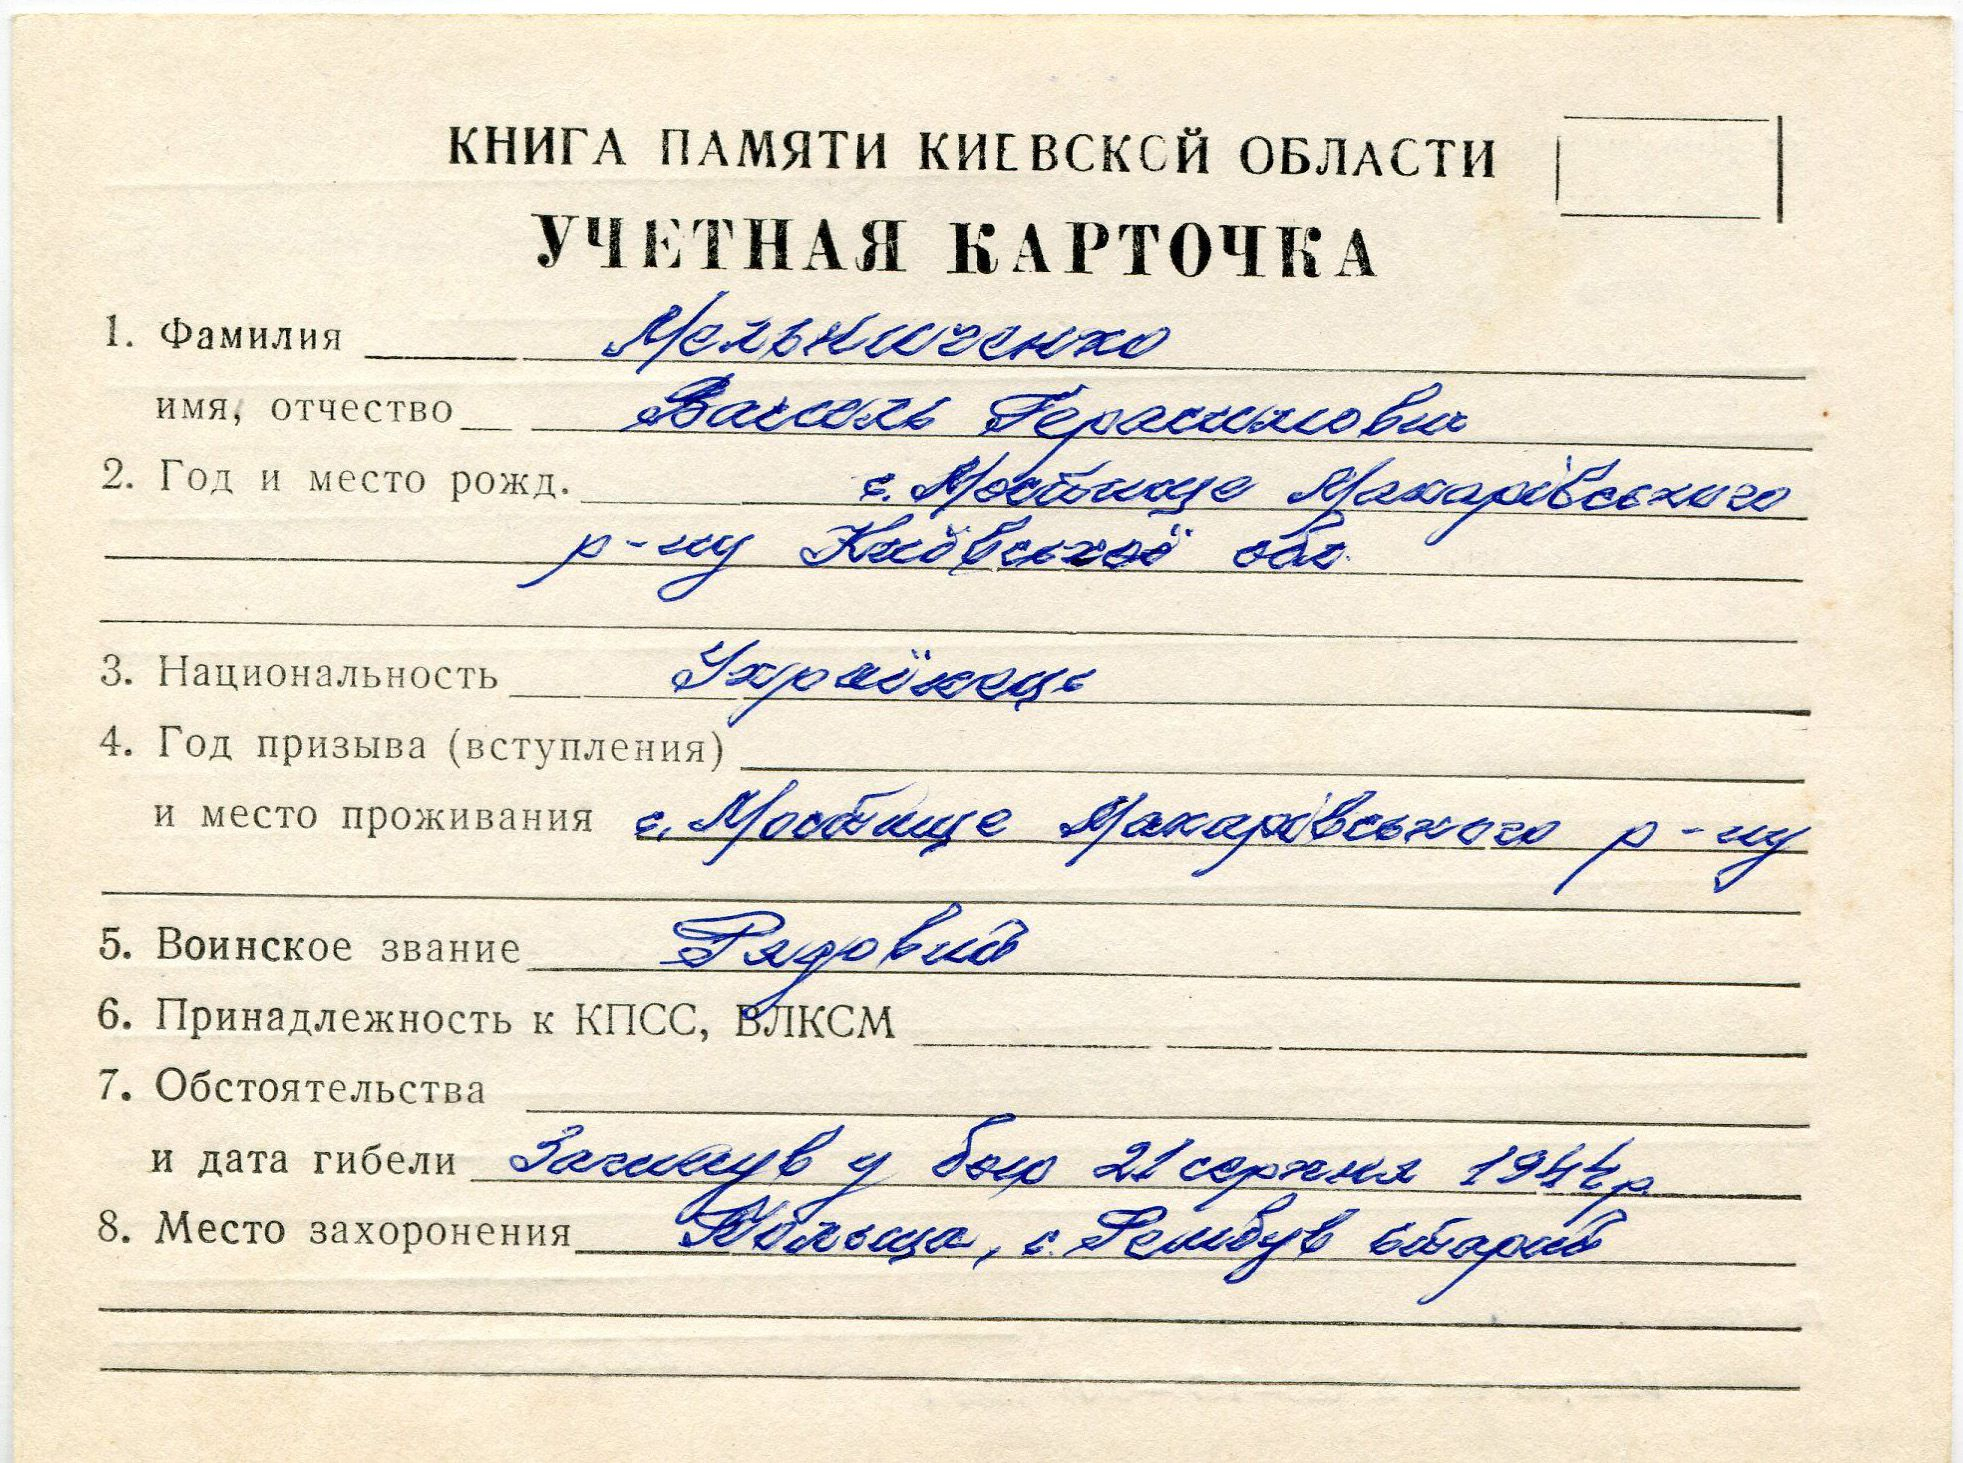 КНИГА ПАМЯТИ КИЕВСКОЙ ОБЛАСТИ
УЧЕТНАЯ КАРТОЧКА
1. Фамилия Мельниченко
имя, отчество Василь Герасимович
2. Год и место рожд. с. Мостище Макарівського
р-ну Київської обл.
3. Национальность Українець
4. Год призыва (вступления)
и место проживания с. Мостище Макарівського р-ну
5. Воинское звание Рядовий
6. Принадлежность к КПСС, ВЛКСМ
7. Обстоятельства
и дата гибели Загинув у бою 21 серпня 1944 р.
8. Место захоронения Польща, с. Рембув старий